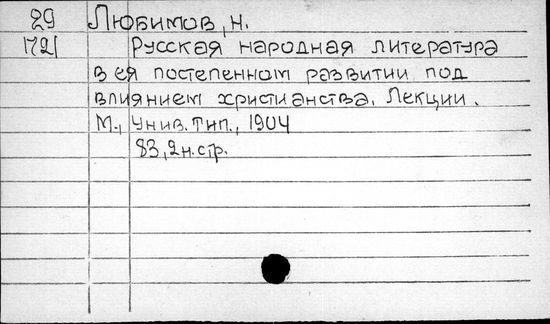 29 Любимов, Н.
1721 Русская народная литература
в ея постепенном развитии под
влиянием христианства. Лекции.
М., Унив. тип., 1904
83, 2 н. стр.